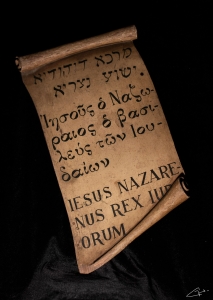 מרכא דיהודיא
ישוע נצריא
Ἰησοῦς ὁ Ναζω
ραιος ὁ βασι
λεύς τῶν Ιου
δαίων
IESUS NAZARE-
NUS REX IUD
ORUM